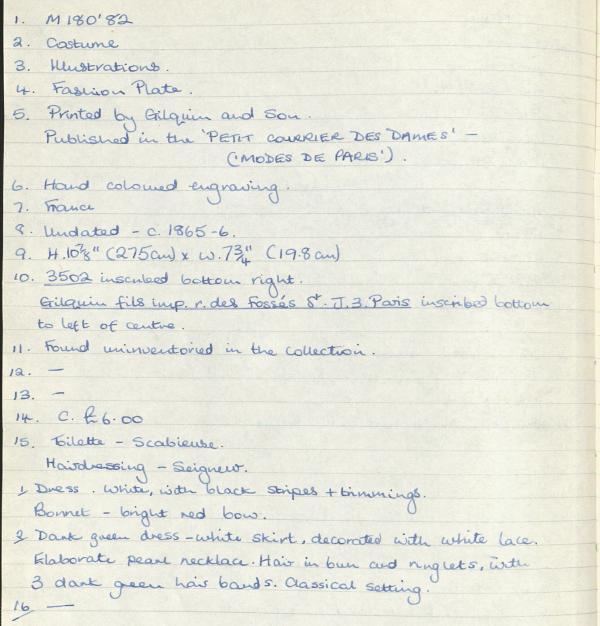 1. M180'82
2. Costume
3. Illustrations.
4. Fashion Plate.
5. Printed by Gilquin and Son.
Published in the 'PETIT COURRIER DES DAMES' –
('MODES DE PARIS').
6. Hand coloured engraving.
7. France
8. Undated - c. 1865-6.
9. H.10⅞" (275cm) x W.7¾" (19.8cm)
10. 3502 inscribed bottom right.
Gilquin fils imp. r. des Fossés St. J.3. Paris inscribed bottom
to left of centre.
11. Found uninventoried in the collection.
12. —
13. —
14. C. £6.00
15. Toilette - Scabieuse.
Hairdressing - Seigneur.
1, Dress. White, with black stripes + trimmings.
Bonnet - bright red bow.
2, Dark green dress - white skirt, decorated with white lace.
Elaborate pearl necklace. Hair in bun and ringlets, with
3 dark green hair bands. Classical setting.
16, —